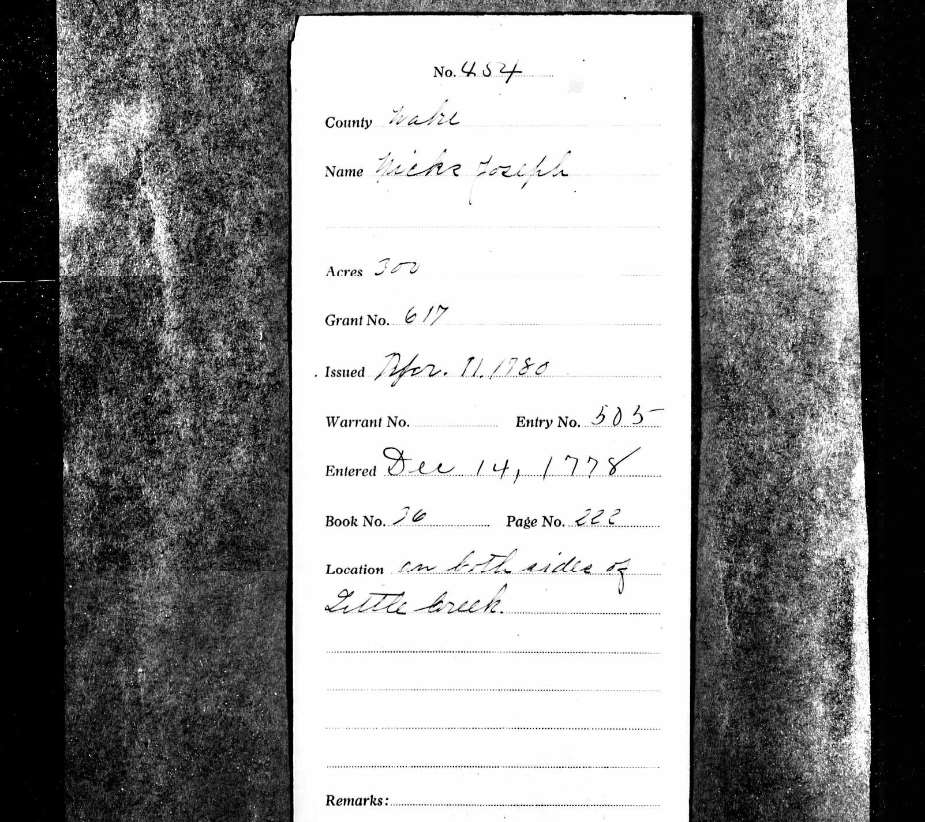 No. 454
County Wake
Name Nicks Joseph
Acres 300
Grant No. 617
Issued Mar. 11, 1780
Warrant No. Entry No. 505
Entered Dec 14, 1778
Book No. 36 Page No. 222
Location on both sides of
Little Creek.
Remarks: